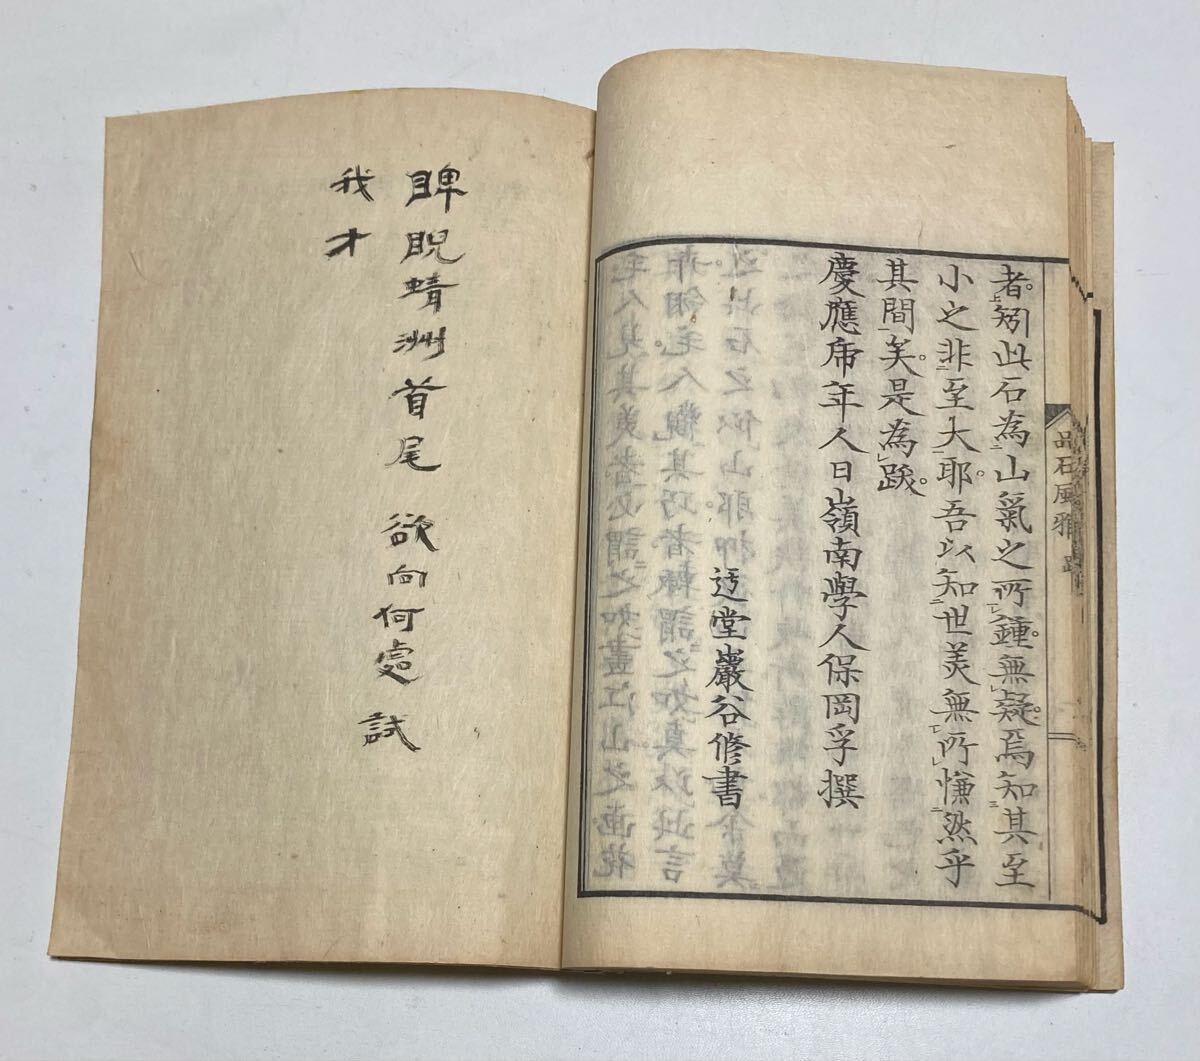 品石風雅 跋
者。矧此石為山氣之所鍾。無疑。焉知其至
小之非至大耶。吾以知世美無所慊然乎
其間矣。是為跋。
慶應乕年人日嶺南學人保岡孚撰
迂堂巖谷修書
睥睨蜻洲首尾 欲向何處 試
我才